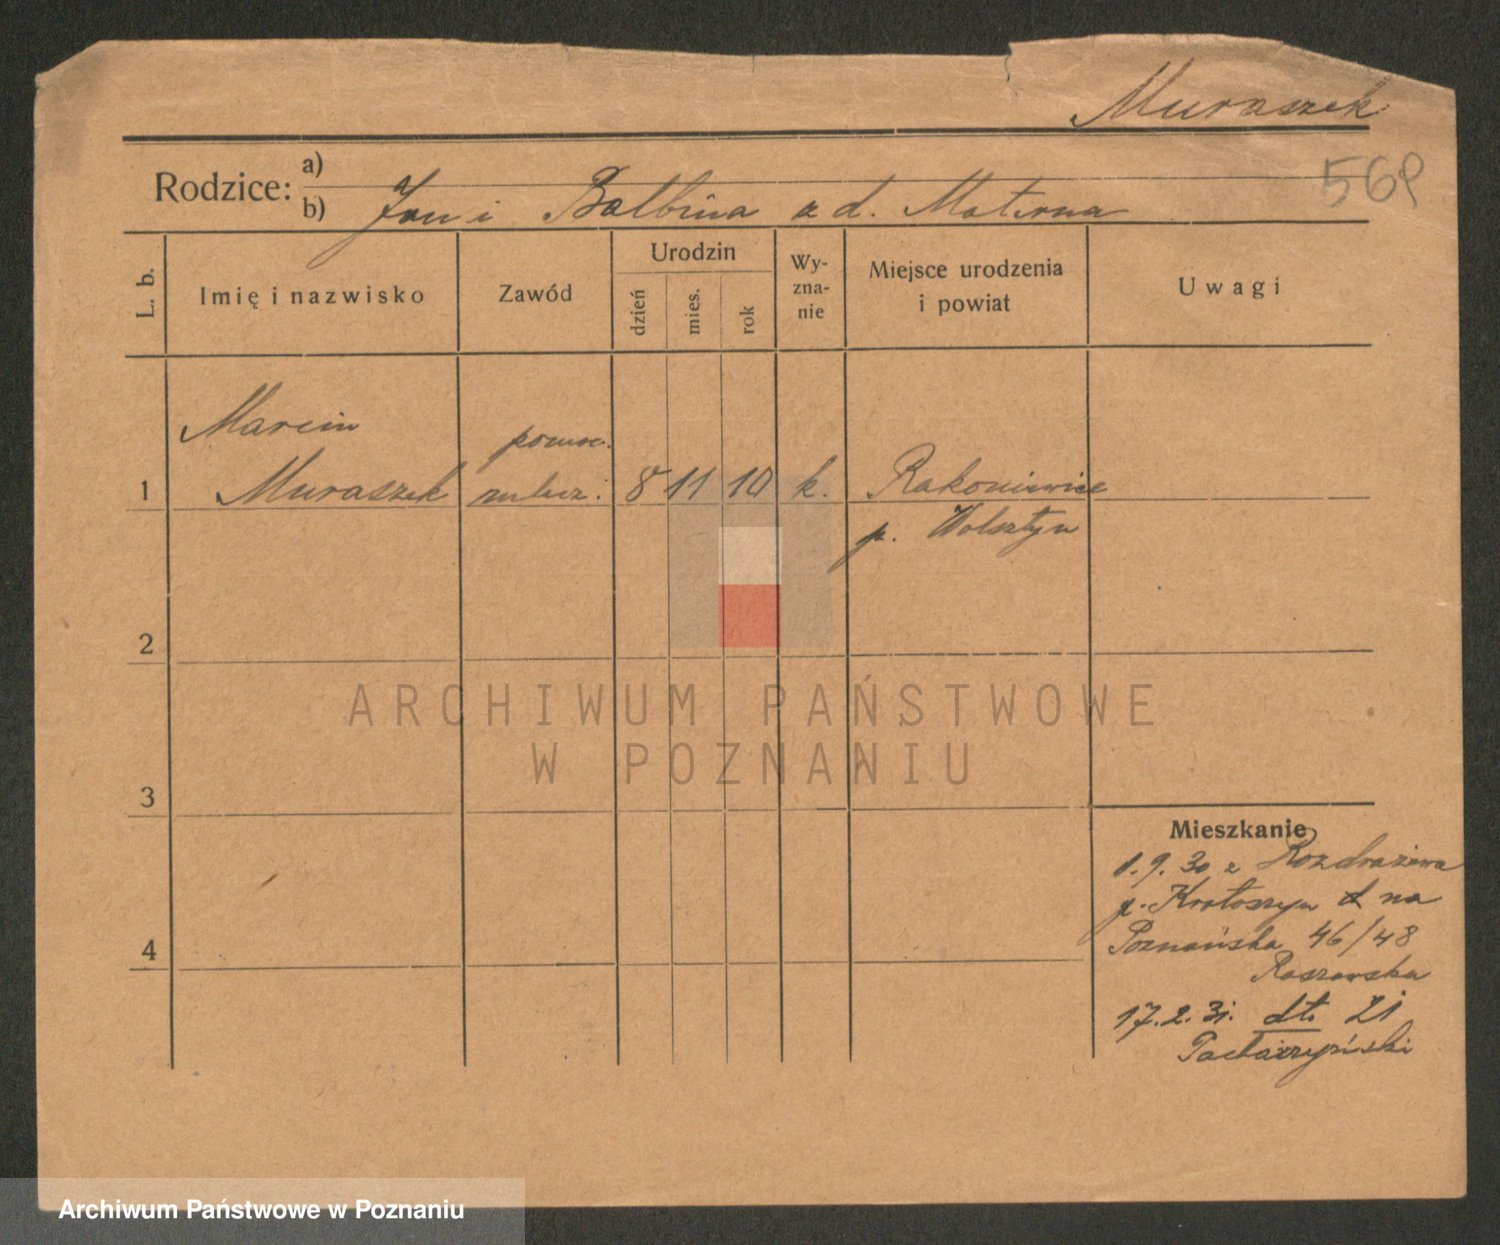 Muraszek
568
Rodzice:
a)
b) Jan i Balbina z d. Materna
L. b.
Imię i nazwisko
Zawód
Urodzin
dzień
mies.
rok
Wy-
zna-
nie
Miejsce urodzenia
i powiat
Uwagi
Marcin
pomoc.
1 Muraszek 8 11 10 k. Rakoniewice
p. Wolsztyn
2
ARCHIWUM PAŃSTWOWE
W POZNANIU
3
Mieszkanie
1.9.30 z Rozdrażewa
p. Krotoszyn na
Poznańska 46/48
Raszewska
4
17.2.31. dto 21
Archiwum Państwowe w Poznaniu